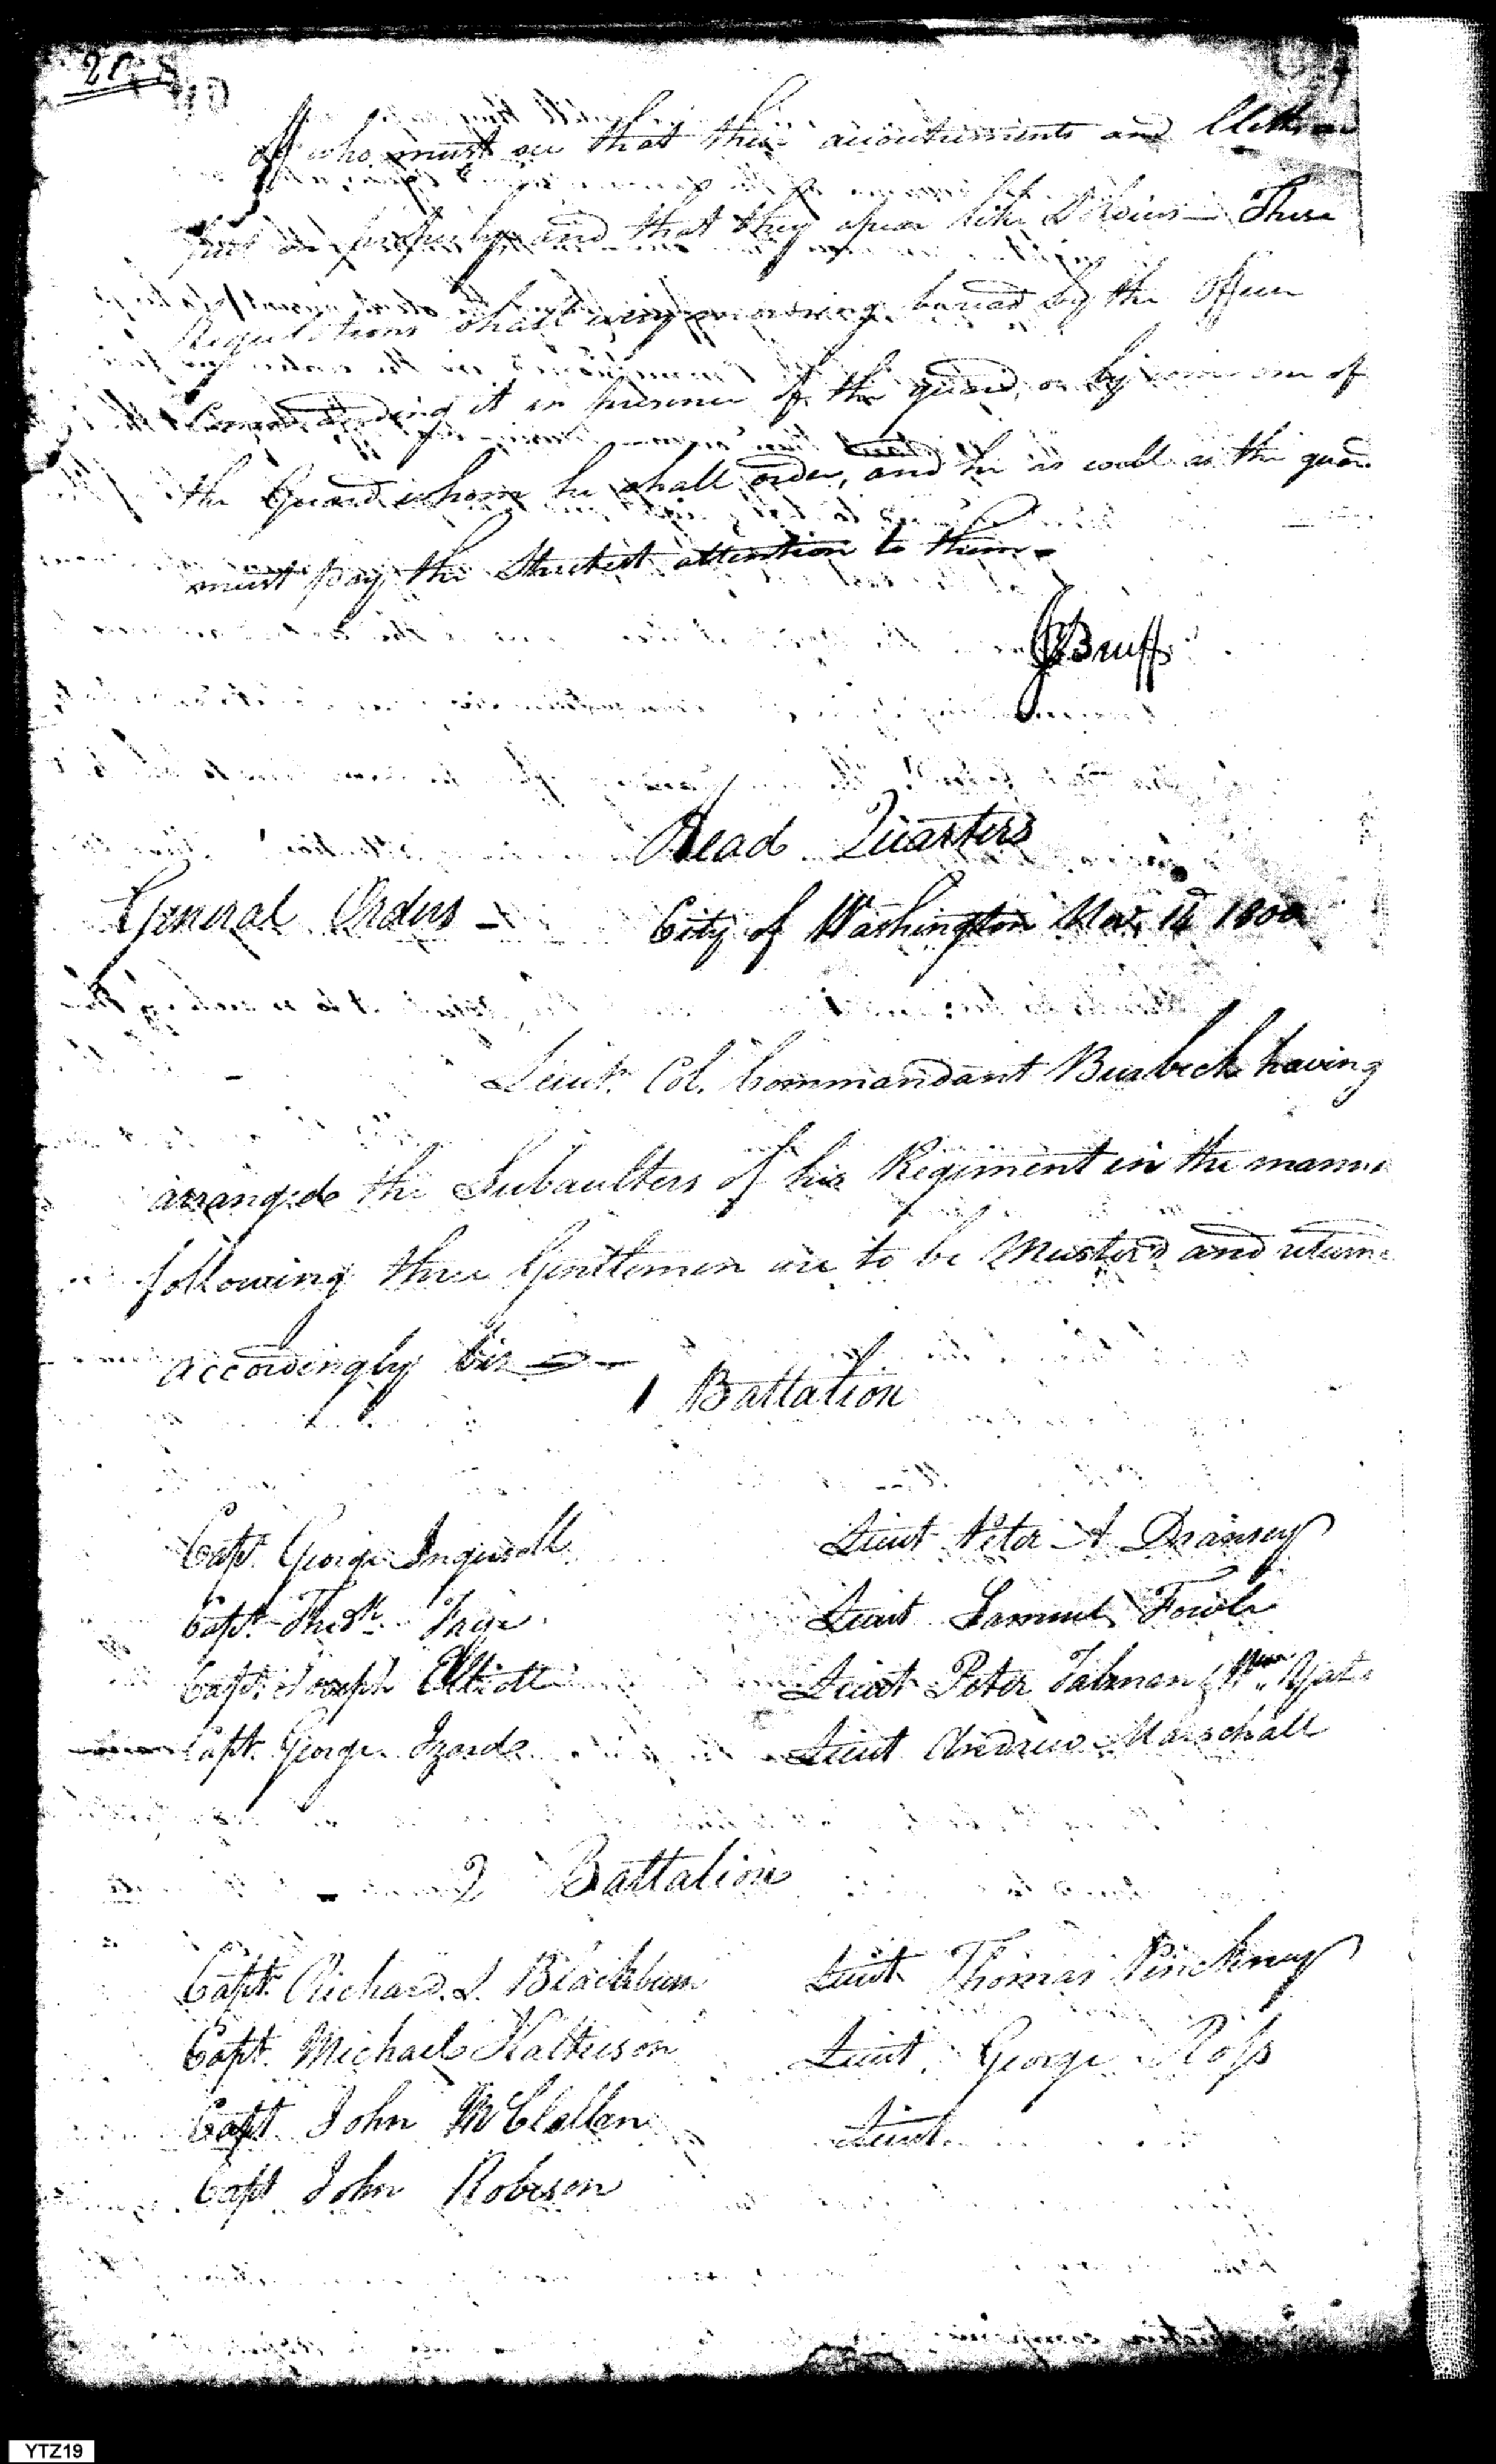 off who must see that their accoutrements and Clothes are
put on properly and that they apear like Soldiers — These
Regulations shall every morning be read by the Officer
Commanding it in presence of the guard, or by some one of
the Guard whom he shall order, and he as well as the guard
must pay the Strictest attention to them —
J Bruff
Head Quarters
General Orders — City of Washington Nov. 14 1800
Lieut. Col. Commandant Burbeck having
arranged the Subaulters of his Regiment in the manner
following these Gentlemen are to be Musterd and return
accordingly viz —
1 Battalion
Capt. George Ingersoll Lieut Peter A Dransey
Capt. Fredk. Frye Lieut Samuel Fowle
Capt. Joseph Elliott Lieut Peter Talman & Wm. Yates
Capt. George Izard Lieut Andrew Marschall
2 Battalion
Capt. Richard S. Blackburn Lieut Thomas Pinckney
Capt. Michael Kalteison Lieut. George Ross
Capt John McClellan Lieut.
Capt John Robeson
YTZ19